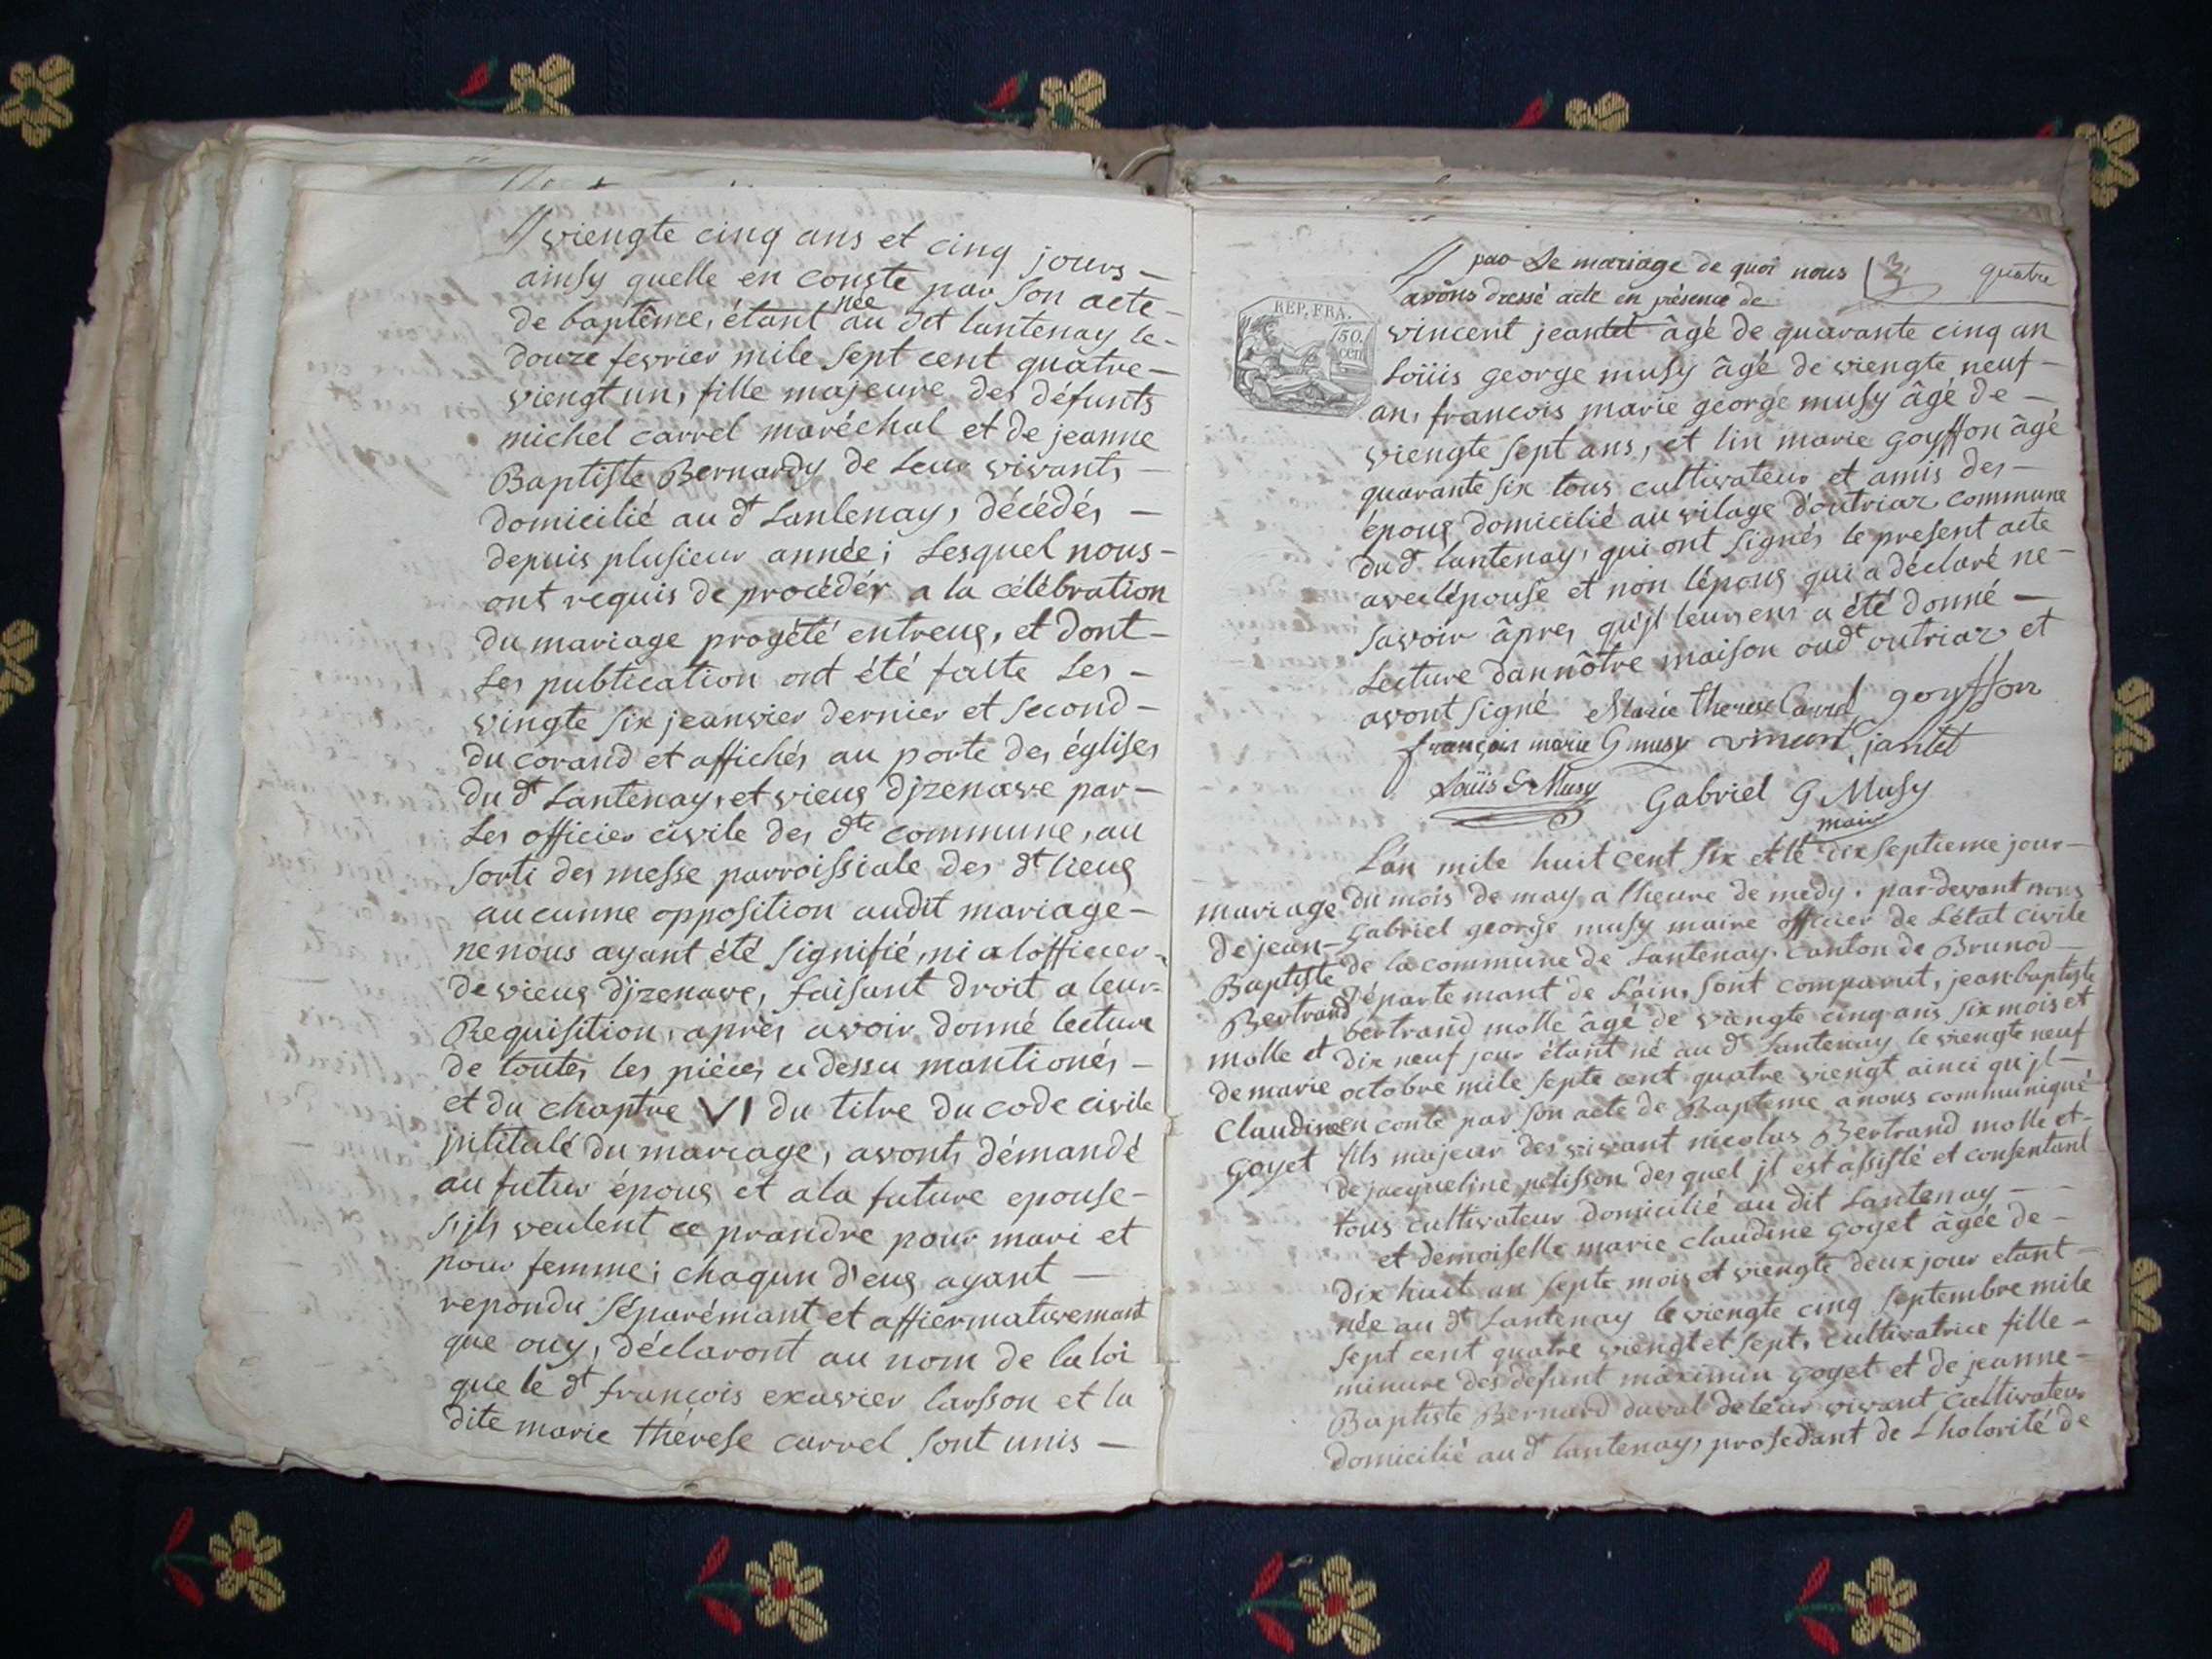 viengte cinq ans et cinq jours -
ainsy quelle en conste par son acte -
de baptême, étant née au dt lantenay le -
douze fevrier mile sept cent quatre -
viengt un, fille majeure des défunts
michel carrel maréchal et de jeanne
Baptiste Bernardy de Leur vivants -
domicilié au dt Lantenay, décédés -
depuis plusieur année; Lesquel nous -
ont requis de procédér a la célébration
du mariage progété entreus, et dont -
Les publication ont été faite Les -
vingte six jeanvier dernier et second -
du corand et affichés au porte des églises
du dt Lantenay, et vieus d'jzenave par -
Les officier civile des dte commune, au
sorti des messe parroissiale des dt lieus
aucunne opposition audit mariage -
ne nous ayant été signifié, ni a lofficier -
de vieus d'jzenave, faisant droit a leur -
Requisition, après avoir donné lecture
de toutes les piéces ci dessu mantionés -
et du chaptre VI du titre du code civile
jntitulé du mariage, avonts démandé
au futur épous et a la future epouse -
s'jls veulent ce prandre pour mari et
pour femme; chaqun d'eus ayant -
repondu séparémant et affiermativemant
que ouy, déclaront au nom de la loi
que le dt françois exavier larsson et la
dite marie thérese carrel sont unis -
par Le mariage de quoi nous
quatre
avons dressé acte en présence de
REP. FRA.
50.
cen
vincent jeantet âgé de quarante cinq an
Loüis george musy âgé de viengte neuf -
an, francois marie george musy âgé de -
viengte sept ans, et lin marie goyffon âgé
quarante six tous cultivateur et amis des -
épous domicilié au vilage d'outriaz commune
du dt lantenay, qui ont signés le present acte
avec lépouse et non lépous qui a déclaré ne -
savoir âpres qu'jl leurs en a été donné -
Lecture dan nôtre maison oudt outriaz et
avont signé Marie therese Carrel goyffon
françois marie G musy vincent jantet
Loüis G Musy Gabriel G Musy
maire
L'an mile huit cent six et le dix septieme jour -
du mois de may a lheure de medy. par devant nous
gabriel george musy maire officier de L'état civile
de la commune de Lantenay. canton de Brunod -
département de L'ain, sont comparut, jean baptiste
bertrand molle âgé de viengte cinq ans six mois et
dix neuf jour étant né au dt Lantenay le viengte neuf
octobre mile septe cent quatre viengt ainci qu'jl -
en conte par son acte de Bapteme a nous communiqué
fils majeur des vivant nicolas Bertrand molle et -
de jacqueline pelisson des quel jl est assisté et consentant
tous cultivateur domicilié au dit Lantenay -
et demoiselle marie claudine goyet âgée de -
dix huit an septe mois et viengte deux jour etant -
née au dt Lantenay le viengte cinq septembre mile
sept cent quatre viengt et sept, cultivatrice fille -
minure des défunt maximin goyet et de jeanne -
Baptiste Bernard duval de leur vivant cultivateur
domicilié au dt lantenay, prosedant de L'holorité de
mariage
de jean -
Baptiste
Bertrand
molle et
de marie
Claudine
goyet